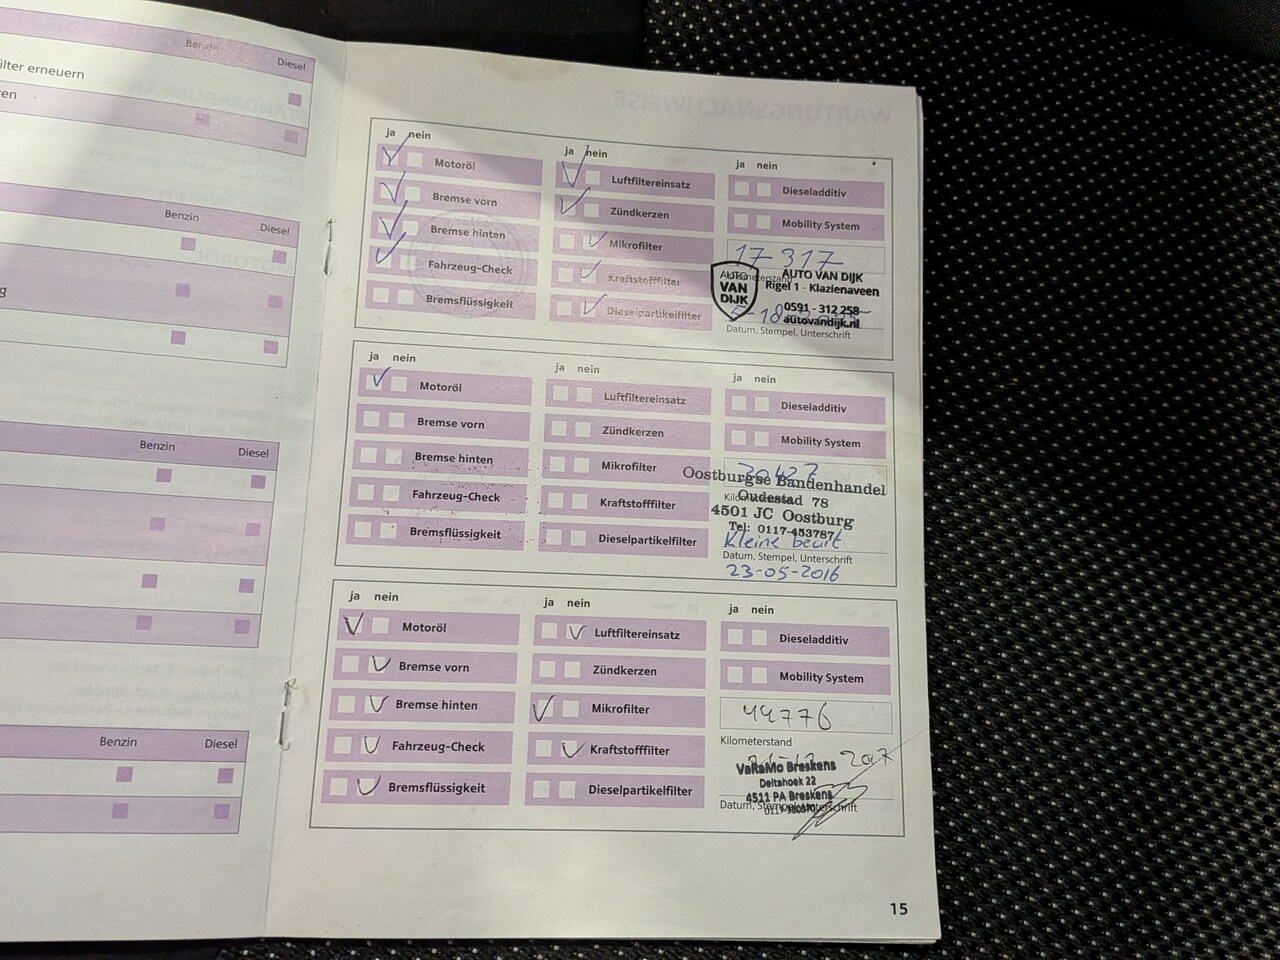 Benzin Diesel
ilter erneuern
en
Benzin Diesel
g
Benzin Diesel
Benzin Diesel
WARTUNGSNACHWEISE
ja nein
Motoröl
Bremse vorn
Bremse hinten
Fahrzeug-Check
Bremsflüssigkeit
ja nein
Luftfiltereinsatz
Zündkerzen
Mikrofilter
Kraftstofffilter
Dieselpartikelfilter
ja nein
Dieseladditiv
Mobility System
17317
AUTO
VAN
DIJK
AUTO VAN DIJK
Rigel 1 - Klazienaveen
0591 - 312 258
autovandijk.nl
Datum, Stempel, Unterschrift
ja nein
Motoröl
Bremse vorn
Bremse hinten
Fahrzeug-Check
Bremsflüssigkeit
ja nein
Luftfiltereinsatz
Zündkerzen
Mikrofilter
Kraftstofffilter
Dieselpartikelfilter
ja nein
Dieseladditiv
Mobility System
30427
Oostburgse Bandenhandel
Oudestad 78
4501 JC Oostburg
Tel: 0117-453787
Kleine beurt
Datum, Stempel, Unterschrift
23-05-2016
ja nein
Motoröl
Bremse vorn
Bremse hinten
Fahrzeug-Check
Bremsflüssigkeit
ja nein
Luftfiltereinsatz
Zündkerzen
Mikrofilter
Kraftstofffilter
Dieselpartikelfilter
ja nein
Dieseladditiv
Mobility System
44776
Kilometerstand
2017
VaRaMo Breskens
Deltahoek 22
4511 PA Breskens
Datum, Stempel, Unterschrift
15